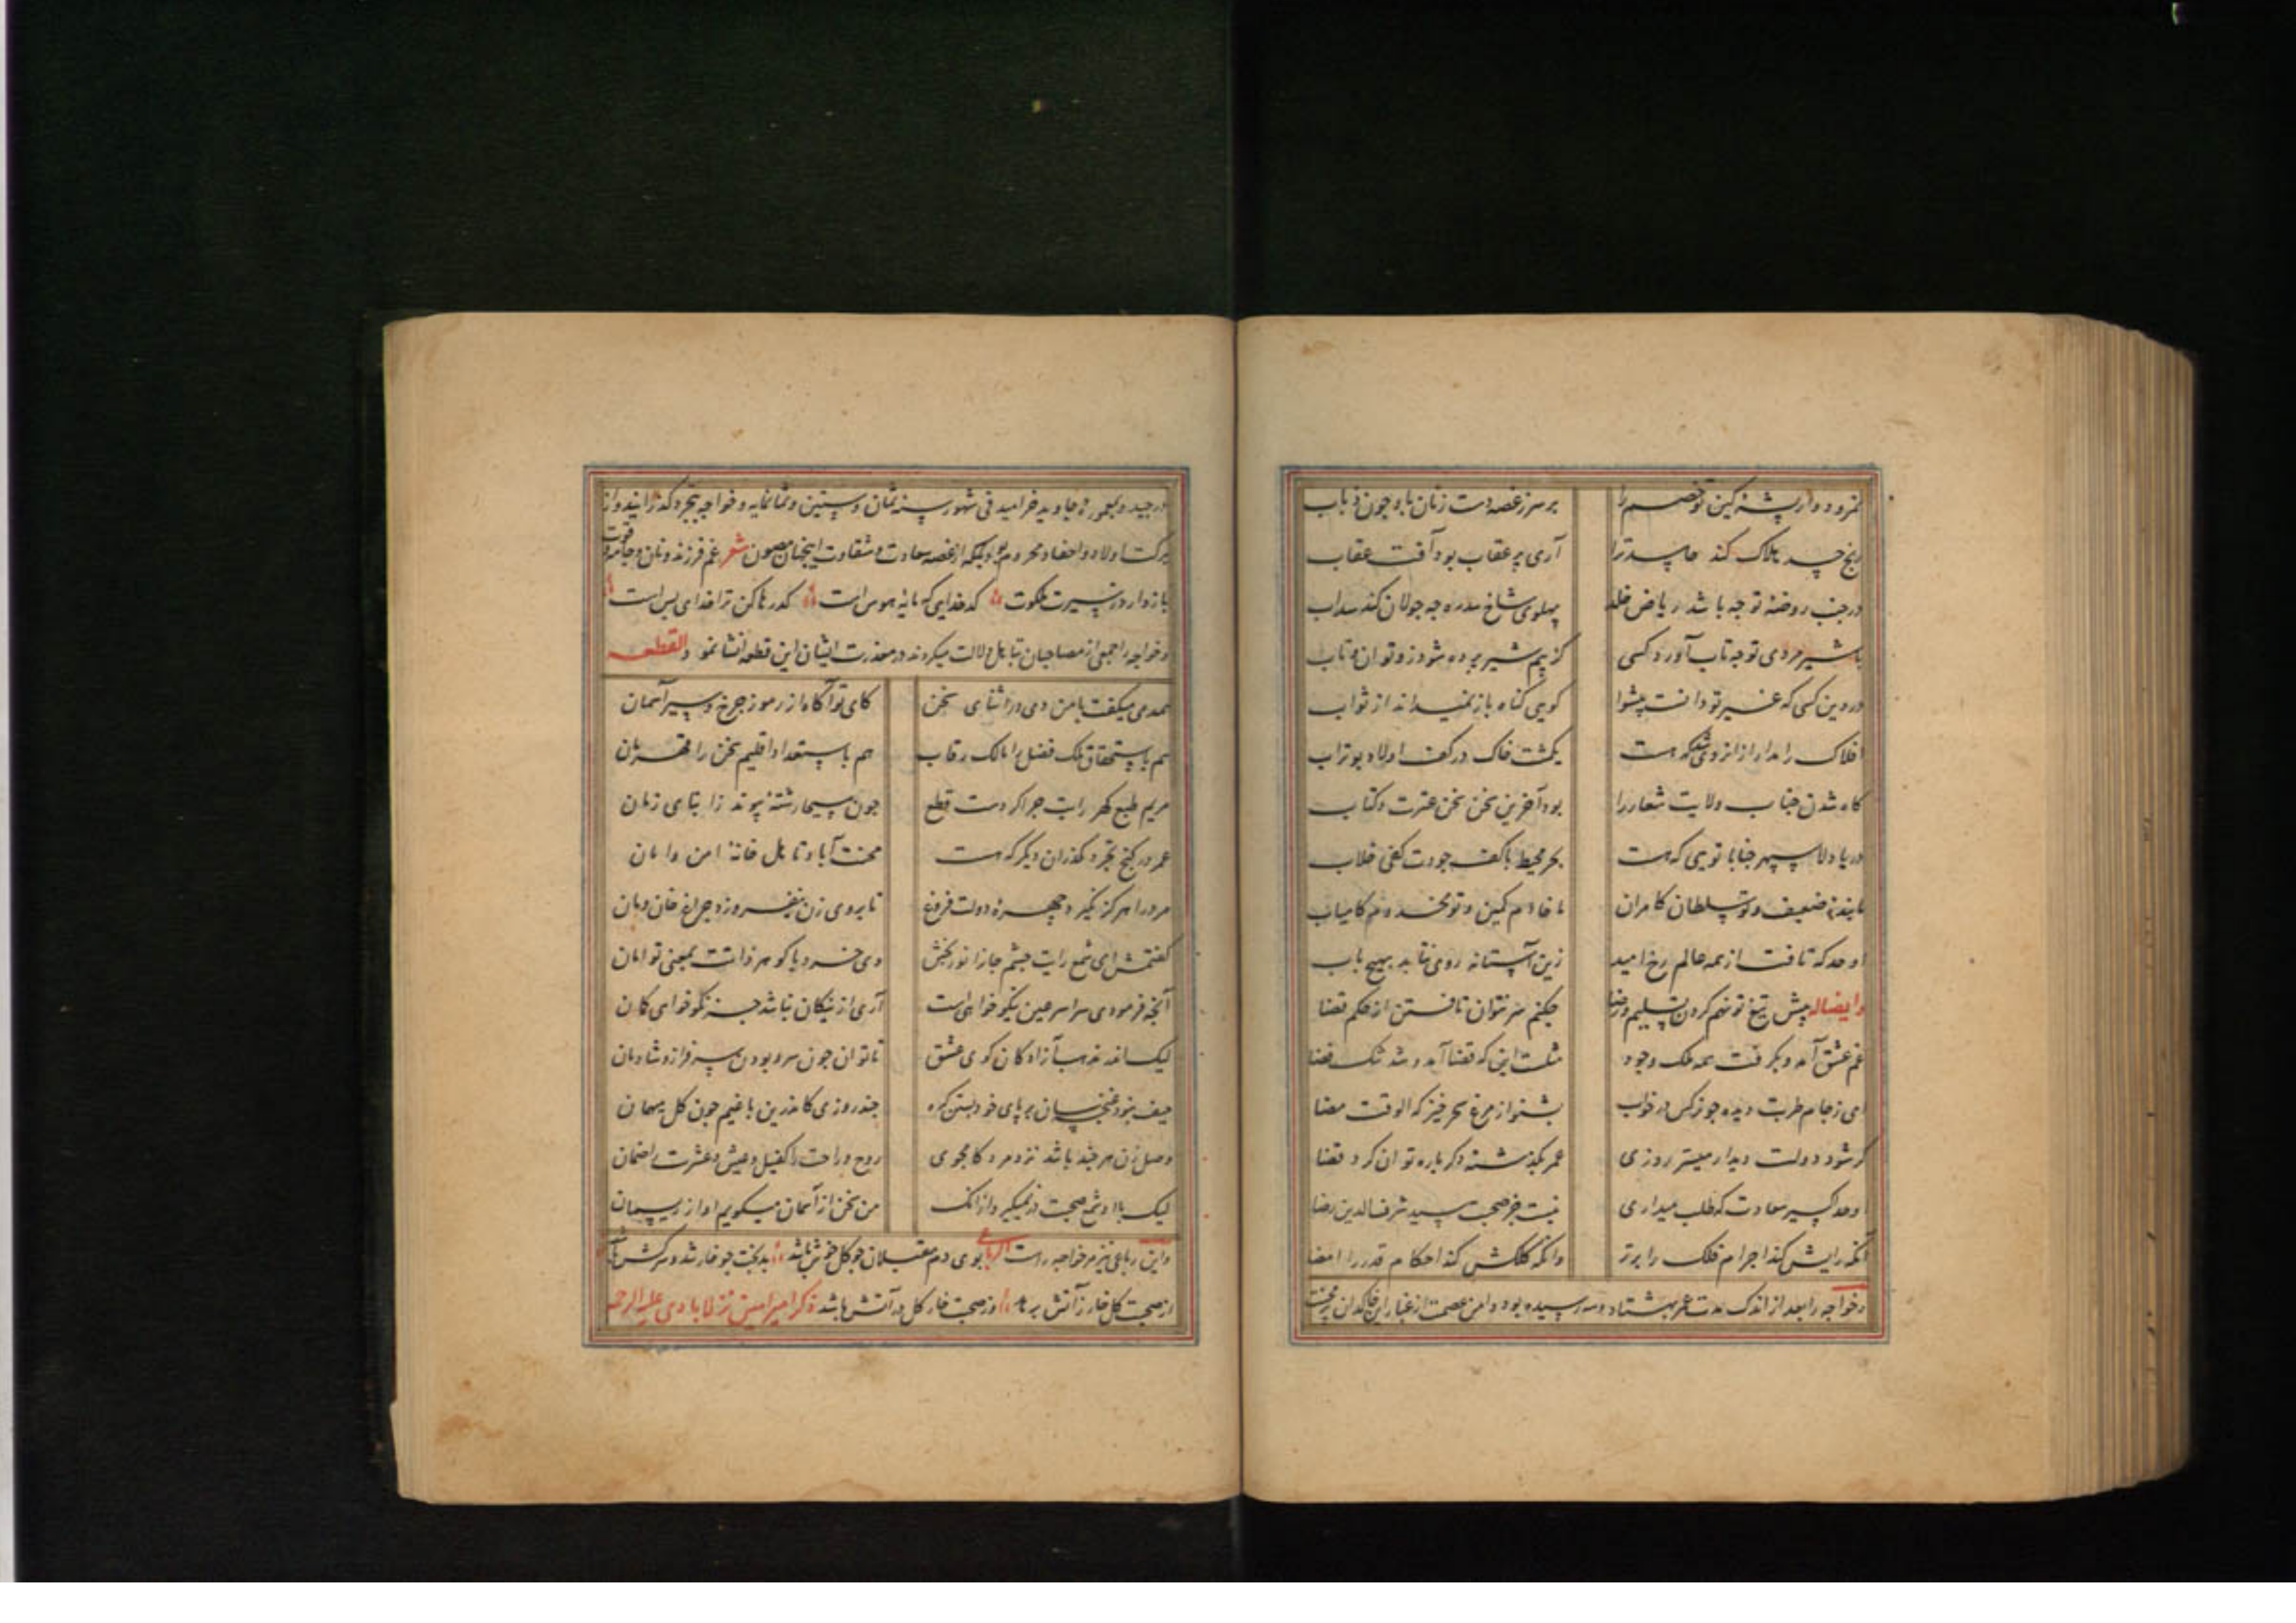 نمرود وار پشه کین تو خصم را بر سر ز غصه دست زنان باد چون ذباب
رنج حسد هلاک کند حاسد ترا آری پر عقاب بود آفت عقاب
در جنب روضه تو چه باشد ریاض خلد پهلوی شاخ سدره چه جولان کند سداب
با شیر مردی تو چه تاب آورد کسی کز بیم شیر پرده شود زو توان و تاب
در دین کسی که غیر تو دانست پیشوا گویی گناه باز نمیداند از ثواب
افلاک را مدار از انروی شد که هست یکمشت خاک در کف اولاد بوتراب
گاه شدن جناب ولایت شعار را بود آخرین سخن سخن عترت و کتاب
دریا دلا سپهر جنابا تویی که هست بحر محیط با کف جودت کفی خلاب
ما بنده ضعیف و تو سلطان کامران ما خادم کمین و تو مخدوم کامیاب
اوحد که تافت از همه عالم رخ امید زین آستانه روی نتابد بهیچ باب
وایضا له پیش تیغ تو نهم گردن تسلیم و رضا چکنم سر نتوان تافتن از حکم قضا
غم عشق آمد و بگرفت همه ملک وجود مثلست این که قضا آید و شد تنگ فضا
ای ز جام طربت دیده چو نرگس در خواب بشنو از مرغ سحر خیز که الوقت مضا
گر شود دولت دیدار میسر روزی عمر بگذشته دگر باره توان کرد قضا
اوحد اکسیر سعادت که طلب میداری نیست جز صحبت سید شرف الدین رضا
آنکه رایش کند اجرام فلک را برتر وانکه کلکش کند احکام قدر را امضا
وخواجه را بعد از اندک مدت عمر بهشتاد و سه رسیده بود دامن عصمت از غبار این خاکدان پر محنت
درچید و بمعموره جاوید خرامید فی شهور سنه ثمان و ستین و ثمانمایه و خواجه بتجرد گذرانیده و از
برکت اولاد و احفاد محروم بود بلکه از غصه سعادت و شقاوت ایشان مصون شعر غم فرزند و نان و جامه و قوت
بازدارد ز سیرت ملکوت کدخدایی که مایه هوس است کدر ها کن ترا خدای بس است
وخواجه را جمعی از مصاحبان بتأهل دلالت میکردند در معذرت ایشان این قطعه انشا نمود القطعه
همدمی میگفت با من دی در اثنای سخن کای تو آگاه از رموز چرخ و سیر آسمان
هم باستحقاق ملک فضل را مالک رقاب هم باستعداد اقلیم سخن را قهرمان
مریم طبع گهر رایت چرا کردست قطع چون مسیحا رشته پیوند ز ابنای زمان
عمر در کنج تجرد مگذران دیگر که هست محنت آباد تاهل خانه امن و امان
مرد را هرگز نگیرد چهره دولت فروغ تا بروی زن نیفروزد چراغ خان و مان
گفتمش ای شمع رایت چشم جانرا نور بخش وی خرد با گوهر ذاتت بمعنی توامان
آنچه فرمودی سراسر عین نیکو خواهی است آری از نیکان نباشد جز نکوخواهی گمان
لیک اندر مذهب آزادگان کوی عشق تا توان چون سرو بودن سرفراز و شادمان
حیف نبود غنچه سان بر پای خود بستن گره چند روزی کاندرین باغیم چون گل میهمان
وصل زن هر چند باشد نزد مرد کامجوی روح و راحت را کفیل و عیش و عشرت را ضمان
لیک با او شمع صحبت در نمیگیرد از انک من سخن از آسمان میگویم او از ریسمان
واین رباعی نیز مر خواجه راست الرباعی بوی دم مقبلان چو گل خوش باشد بدبخت چو خار شد و سرکش باشد
از صحبت گل خار ز آتش برهد وز صحبت خار گل در آتش باشد ذکر امیر امین نزلابادی علیه الرحمه